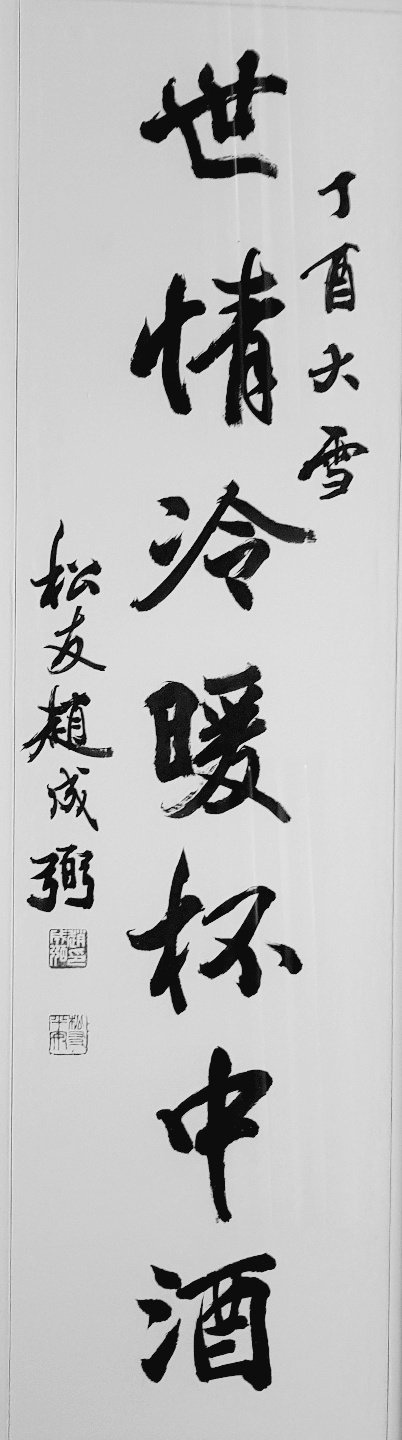 丁酉大雪
世情冷暖杯中酒
松友趙成弼